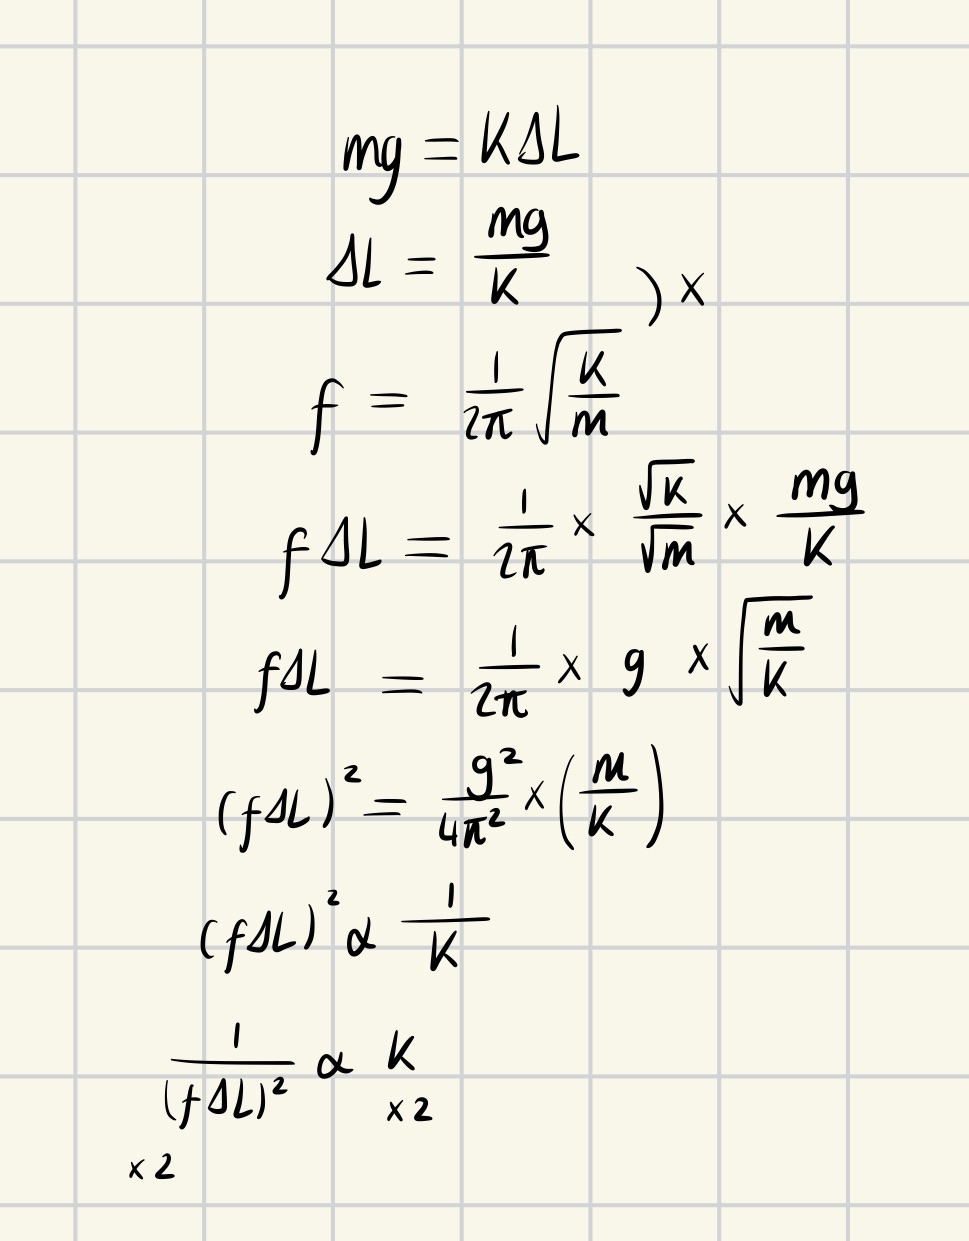 mg = KΔL
ΔL = mg/K
) ×
f = 1/2π √(K/m)
fΔL = 1/2π × √K/√m × mg/K
fΔL = 1/2π × g × √(m/K)
(fΔL)² = g²/4π² × (m/K)
(fΔL)² ∝ 1/K
1/(fΔL)² ∝ K
×2
×2